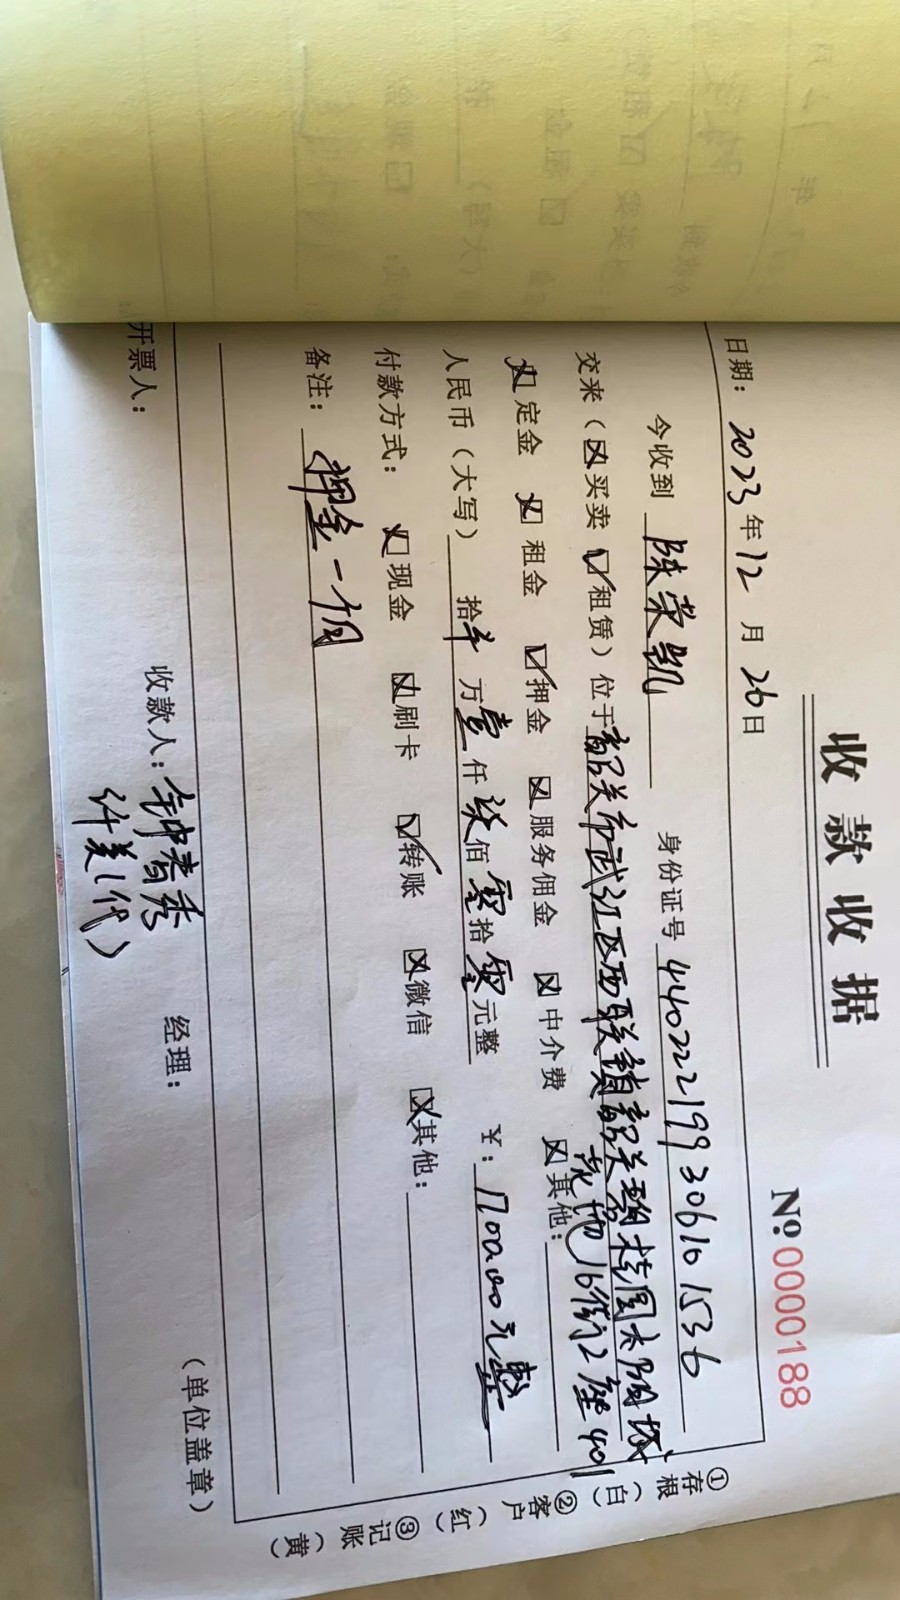 收款收据
№0000188
日期：2023年12月26日
今收到 陈荣凯 身份证号 440222199306101536
交来（☒买卖 ☑租赁）位于韶关市武江区西联镇韶关碧桂园太阳城
16街2座401
☒定金 ☒租金 ☑押金 ☒服务佣金 ☒中介费 ☒其他：
人民币（大写） 拾 万壹仟柒佰零拾零元整 ¥：1700.00元整
付款方式：☒现金 ☒刷卡 ☑转账 ☒微信 ☒其他：
备注：押金一个月
开票人： 收款人：钟春秀 经理： （单位盖章）
许美（代）
①存根（白）②客户（红）③记账（黄）